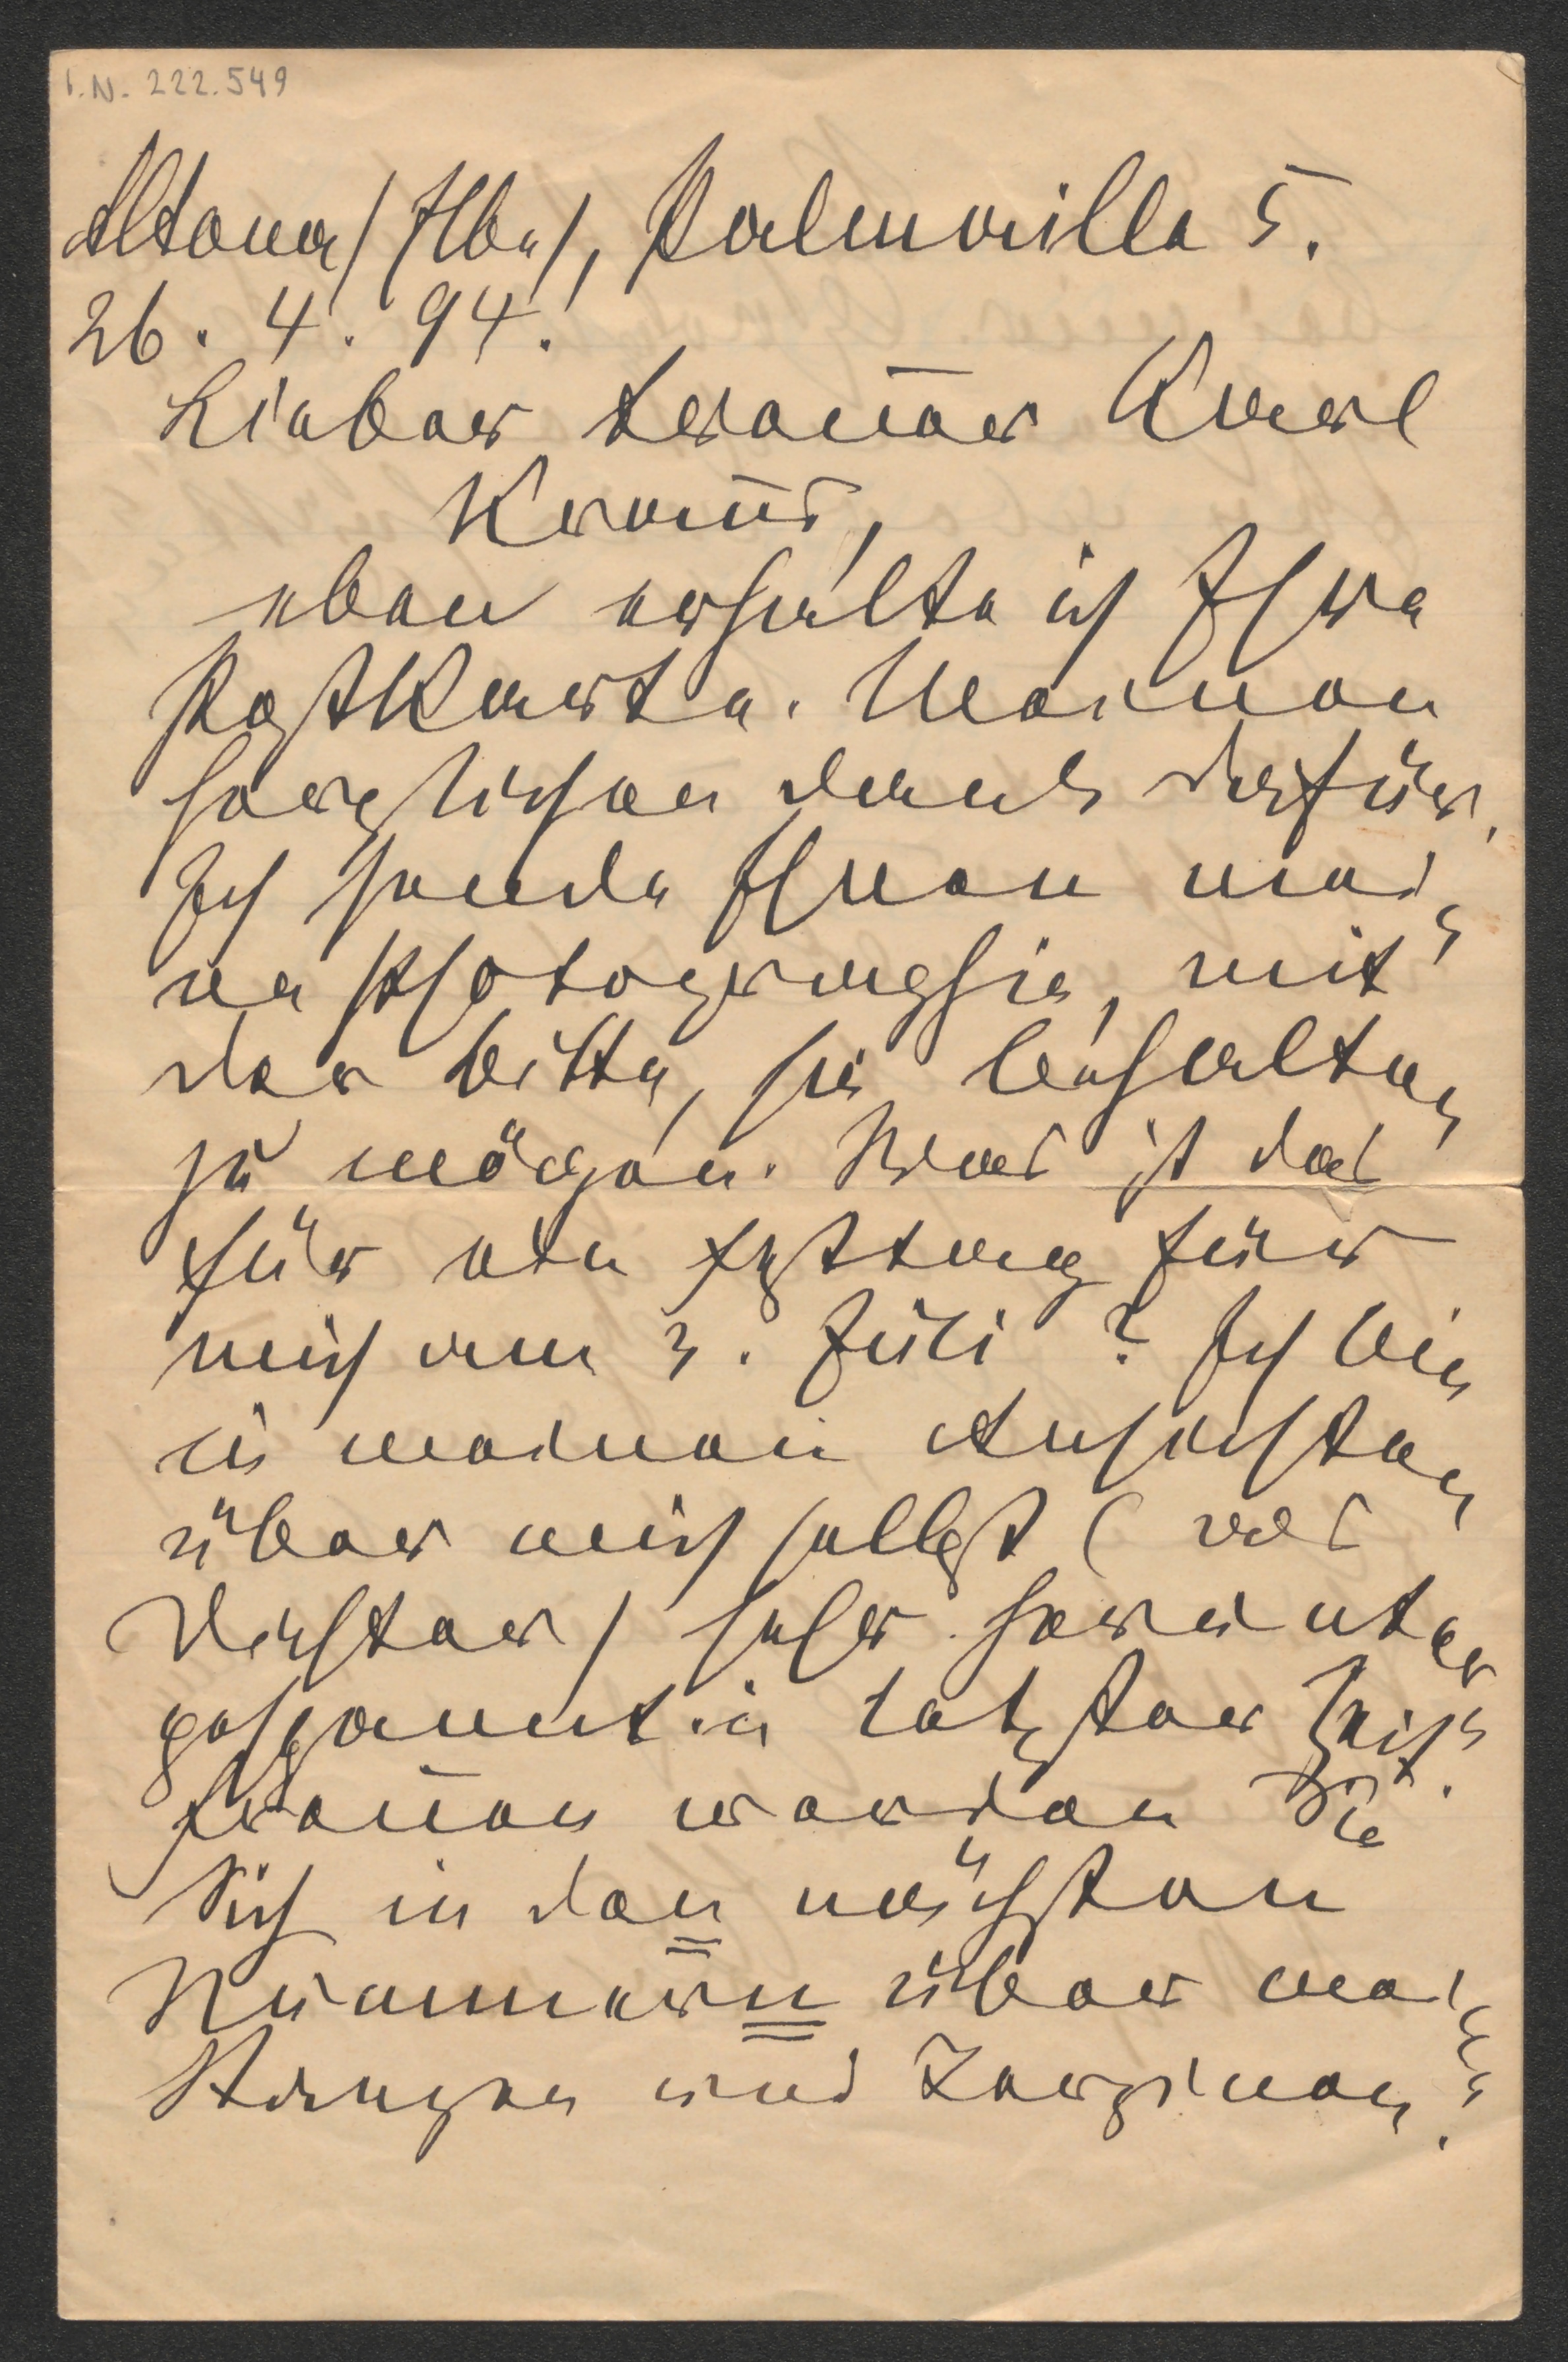 I.N. 222.549
Altona/Elbe/, Palmaille 5.
26. 4. 94.
Lieber treuer Karl
Kraus,
eben erhalte ich Ihre
Postkarte. Meinen
herzlichen Dank dafür.
Ich sende Ihnen mei-
ne Photographie, mit
der Bitte, sie behalten
zu mögen. Was ist das
für ein Festtag für
mich am 3. Juli? Ich bin
in meinen Ansichten
über mich selbst (als
Dichter) sehr herunter
gespannt in letzter Zeit.
Freuen werden Sie
Sich in den nächsten
Nummern über mei-
ne Stanzen und Terzinen.